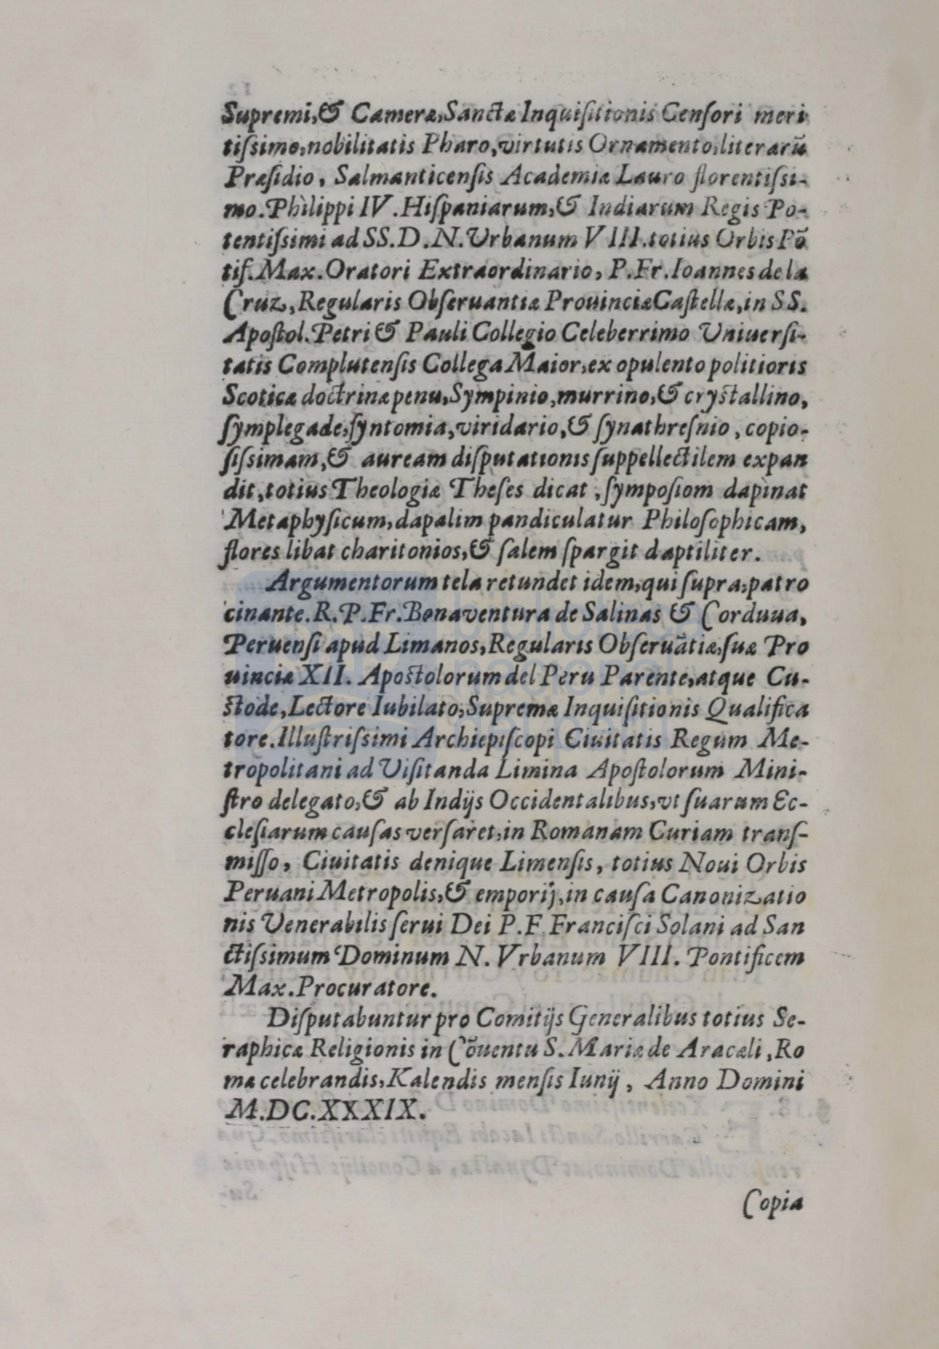 Supremi,& Cameræ,Sanctæ Inquiſitionis Cenſori meri
tiſsimo,nobilitatis Pharo,virtutis Ornamento,literarū
Præſidio, Salmanticenſis Academiæ Lauro florentiſsi-
mo.Philippi IV.Hiſpaniarum,& Indiarum Regis Po-
tentiſsimi ad SS.D.N.Urbanum VIII.totius Orbis Pō
tif.Max.Oratori Extraordinario, P.Fr.Ioannes de la
Cruz,Regularis Obſeruantiæ Prouinciæ Caſtellæ,in SS.
Apoſtol.Petri & Pauli Collegio Celeberrimo Uniuerſi-
tatis Complutenſis Collega Maior,ex opulento politioris
Scoticæ doctrinæ penu,Sympinio,murrino,& cryſtallino,
ſymplegade,ſyntomia,viridario,& ſynathreſnio, copio-
ſiſsimam,& auream diſputationis ſuppellectilem expan
dit,totius Theologiæ Theſes dicat, ſympoſiom dapinat
Metaphyſicum,dapalim pandiculatur Philoſophicam,
flores libat charitonios,& ſalem ſpargit daptiliter.
Argumentorum tela retundet idem,qui ſupra,patro
cinante.R.P.Fr.Bonaventura de Salinas & Corduua,
Peruenſi apud Limanos,Regularis Obſeruātiæ,ſuæ Pro
uinciæ XII. Apoſtolorum del Peru Parente,atque Cu-
ſtode,Lectore Iubilato,Supremæ Inquiſitionis Qualifica
tore.Illuſtriſsimi Archiepiſcopi Ciuitatis Regum Me-
tropolitani ad Uiſitanda Limina Apoſtolorum Mini-
ſtro delegato,& ab Indijs Occidentalibus,vt ſuarum Ec-
cleſiarum cauſas verſaret,in Romanam Curiam tranſ-
miſſo, Ciuitatis denique Limenſis, totius Noui Orbis
Peruani Metropolis,& emporij,in cauſa Canonizatio
nis Uenerabilis ſerui Dei P.F.Franciſci Solani ad San
ctiſsimum Dominum N. Vrbanum VIII. Pontificem
Max.Procuratore.
Diſputabuntur pro Comitijs Generalibus totius Se-
raphicæ Religionis in Cōuentu S.Mariæ de Aracæli,Ro
mæ celebrandis,Kalendis menſis Iunij, Anno Domini
M.DC.XXXIX.
Copia